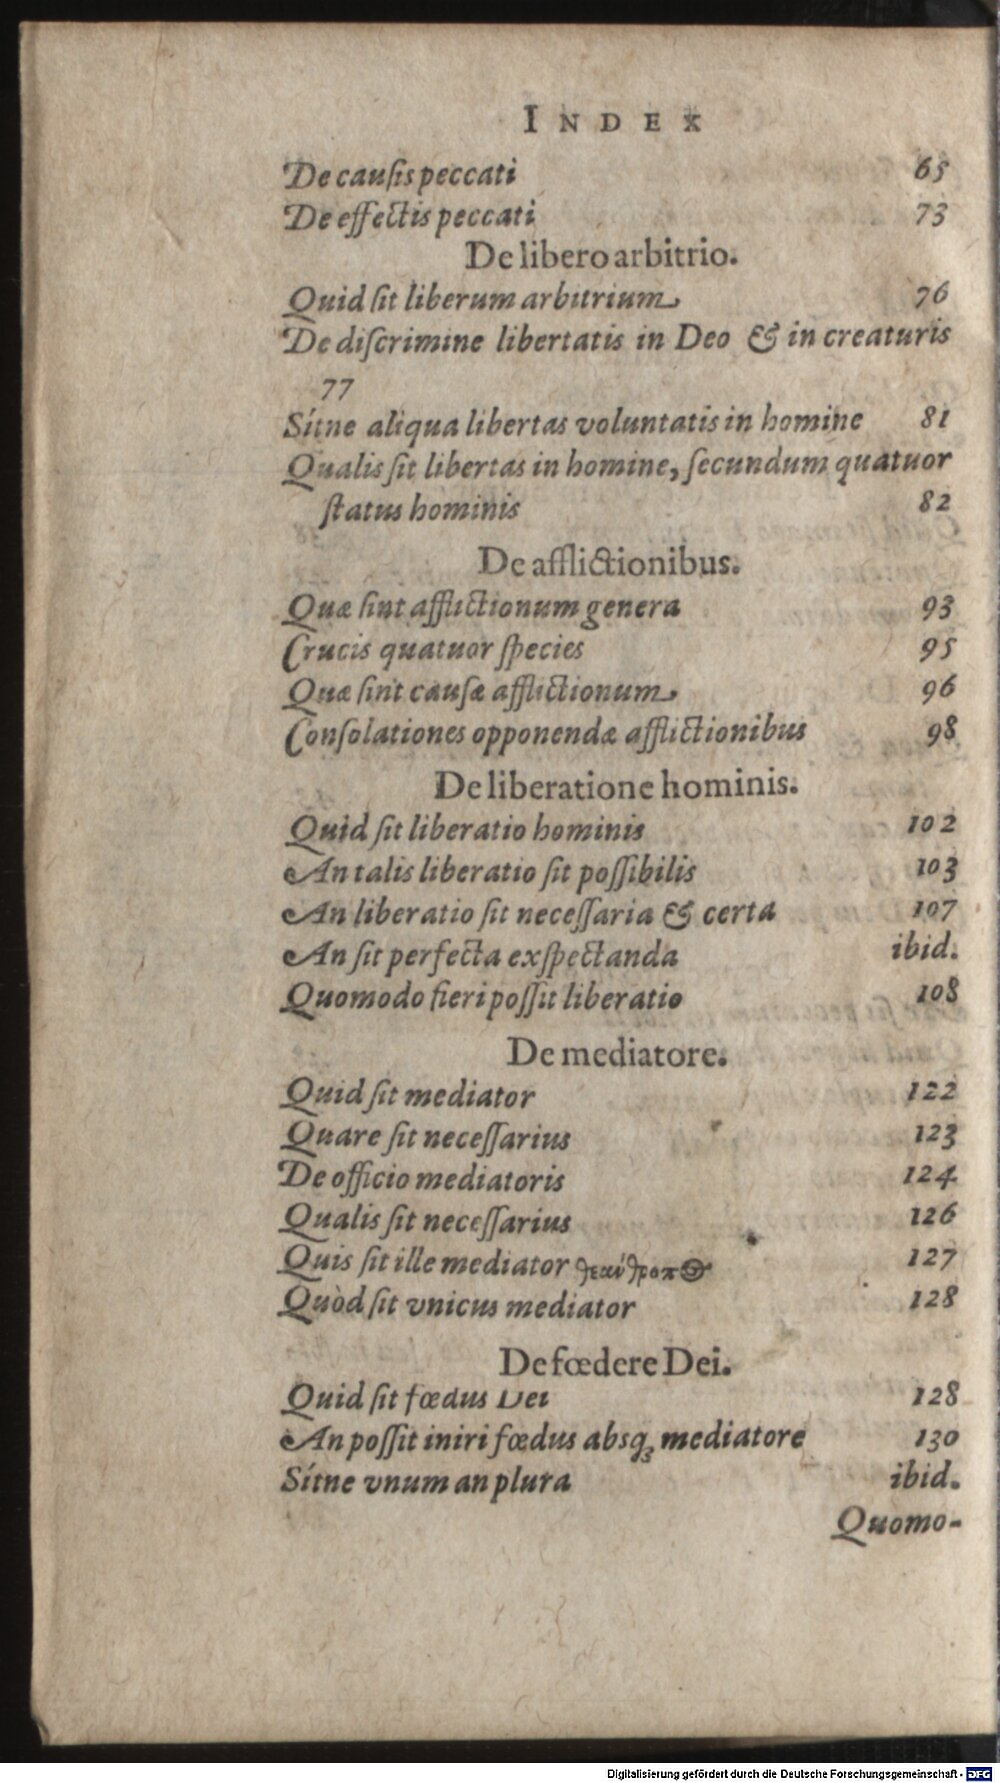 INDEX
De cauſis peccati 65
De effectis peccati 73
De libero arbitrio.
Quid ſit liberum arbitrium 76
De diſcrimine libertatis in Deo & in creaturis
77
Sítne aliqua libertas voluntatis in homine 81
Qualis ſit libertas in homine, ſecundum quatuor
ſtatus hominis 82
De afflictionibus.
Quæ ſint afflictionum genera 93
Crucis quatuor ſpecies 95
Quæ ſint cauſæ afflictionum 96
Conſolationes opponendæ afflictionibus 98
De liberatione hominis.
Quid ſit liberatio hominis 102
An talis liberatio ſit poſſibilis 103
An liberatio ſit neceſſaria & certa 107
An ſit perfecta exſpectanda ibid.
Quomodo fieri poſſit liberatio 108
De mediatore.
Quid ſit mediator 122
Quare ſit neceſſarius 123
De officio mediatoris 124
Qualis ſit neceſſarius 126
Quis ſit ille mediator θεαύθροπος 127
Quòd ſit vnicus mediator 128
De fœdere Dei.
Quid ſit fœdus Dei 128
An poſſit iniri fœdus absq; mediatore 130
Sítne vnum an plura ibid.
Quomo-
Digitalisierung gefördert durch die Deutsche Forschungsgemeinschaft - DFG